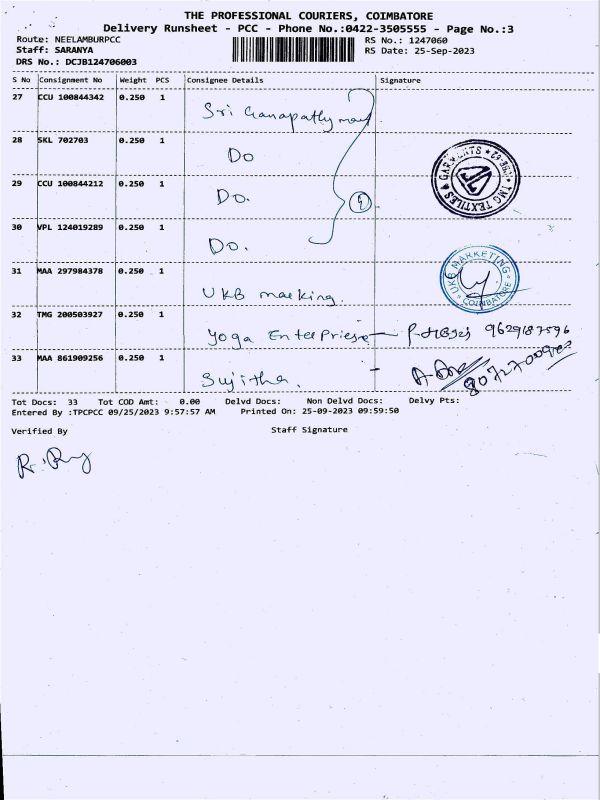 THE PROFESSIONAL COURIERS, COIMBATORE
Delivery Runsheet - PCC - Phone No.:0422-3505555 - Page No.:3
Route: NEELAMBURPCC RS No.: 1247060
Staff: SARANYA RS Date: 25-Sep-2023
DRS No.: DCJB124706003
S No Consignment No Weight PCS Consignee Details Signature
27 CCU 100844342 0.250 1 Sri Ganapathy
28 SKL 702703 0.250 1 Do
29 CCU 100844212 0.250 1 Do.
GARMENTS TMG TEXTILES
30 VPL 124019289 0.250 1 Do.
31 MAA 297984378 0.250 1 UKB marking.
UKB MARKETING COIMBATORE
32 TMG 200503927 0.250 1 Yoga Enterpriese 9629187596
33 MAA 861909256 0.250 1 Sujitha.
Tot Docs: 33 Tot COD Amt: 0.00 Delvd Docs: Non Delvd Docs: Delvy Pts:
Entered By :TPCPCC 09/25/2023 9:57:57 AM Printed On: 25-09-2023 09:59:50
Verified By Staff Signature